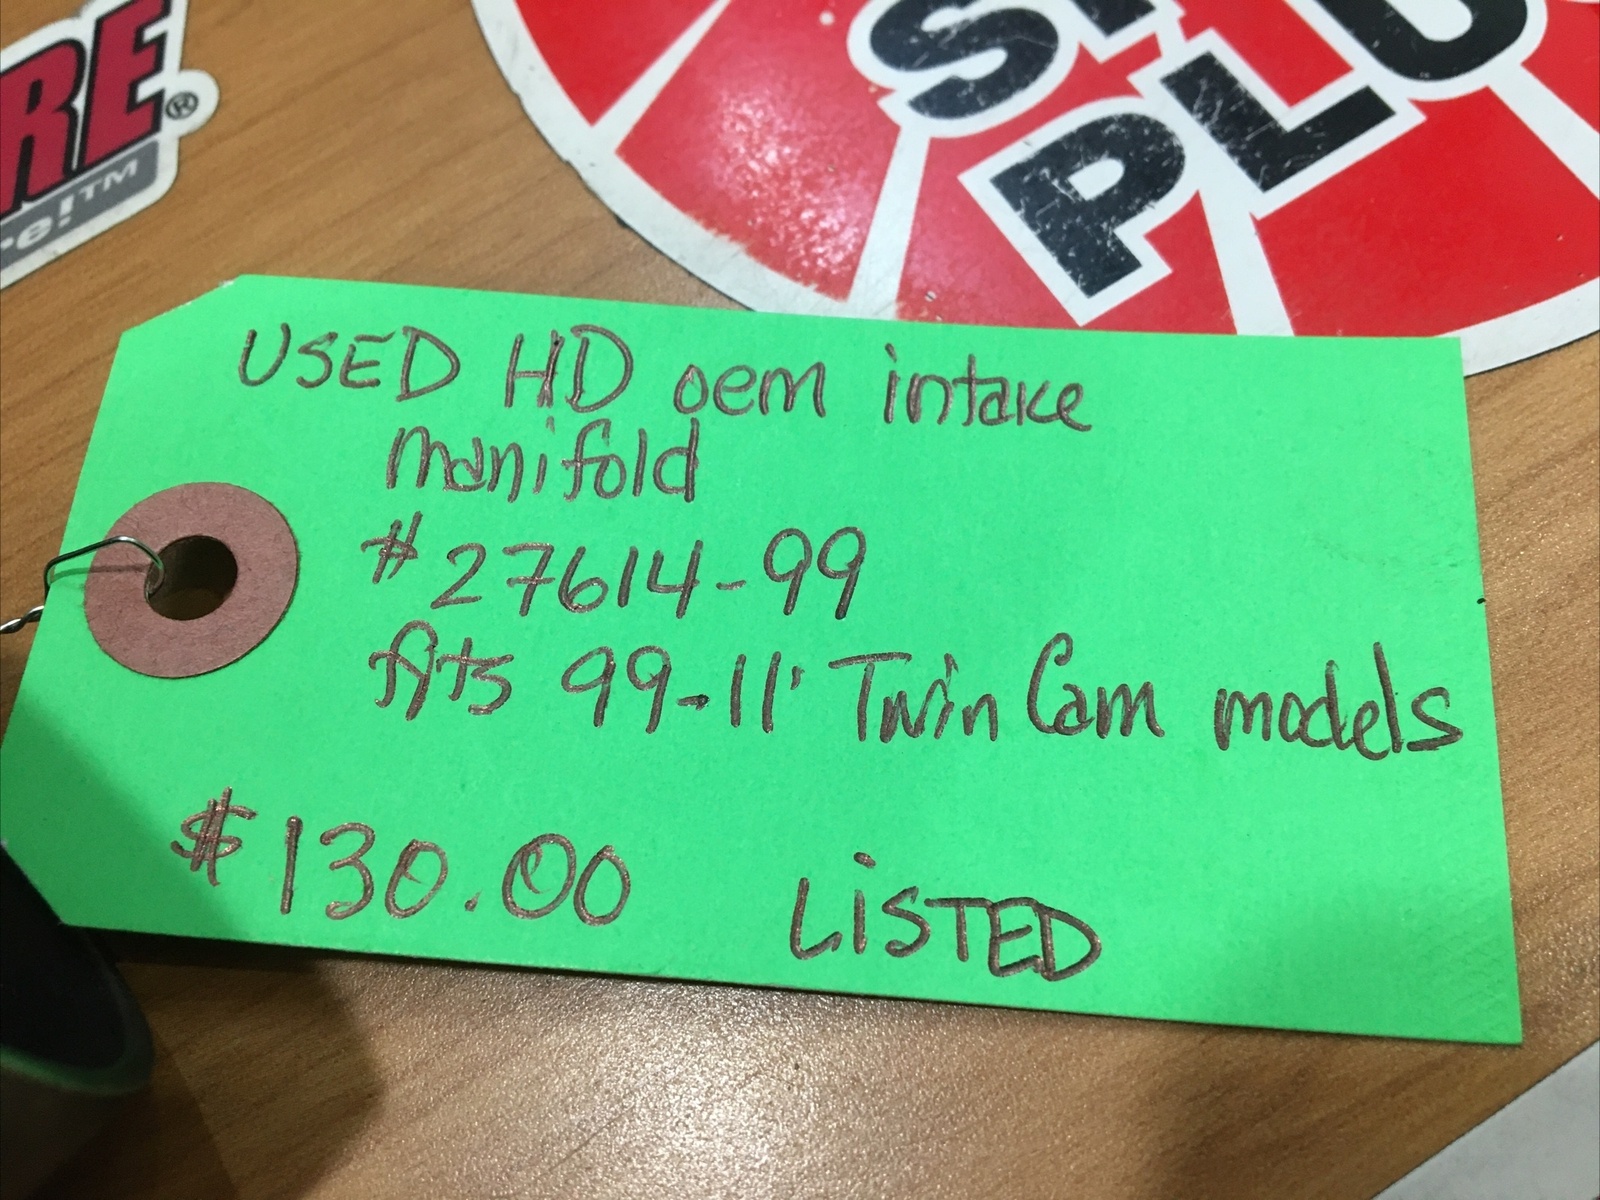 RE®
re!™
PL
USED HD oem intake
manifold
#27614-99
fits 99-11' Twin Cam models
$130.00 LiSTED